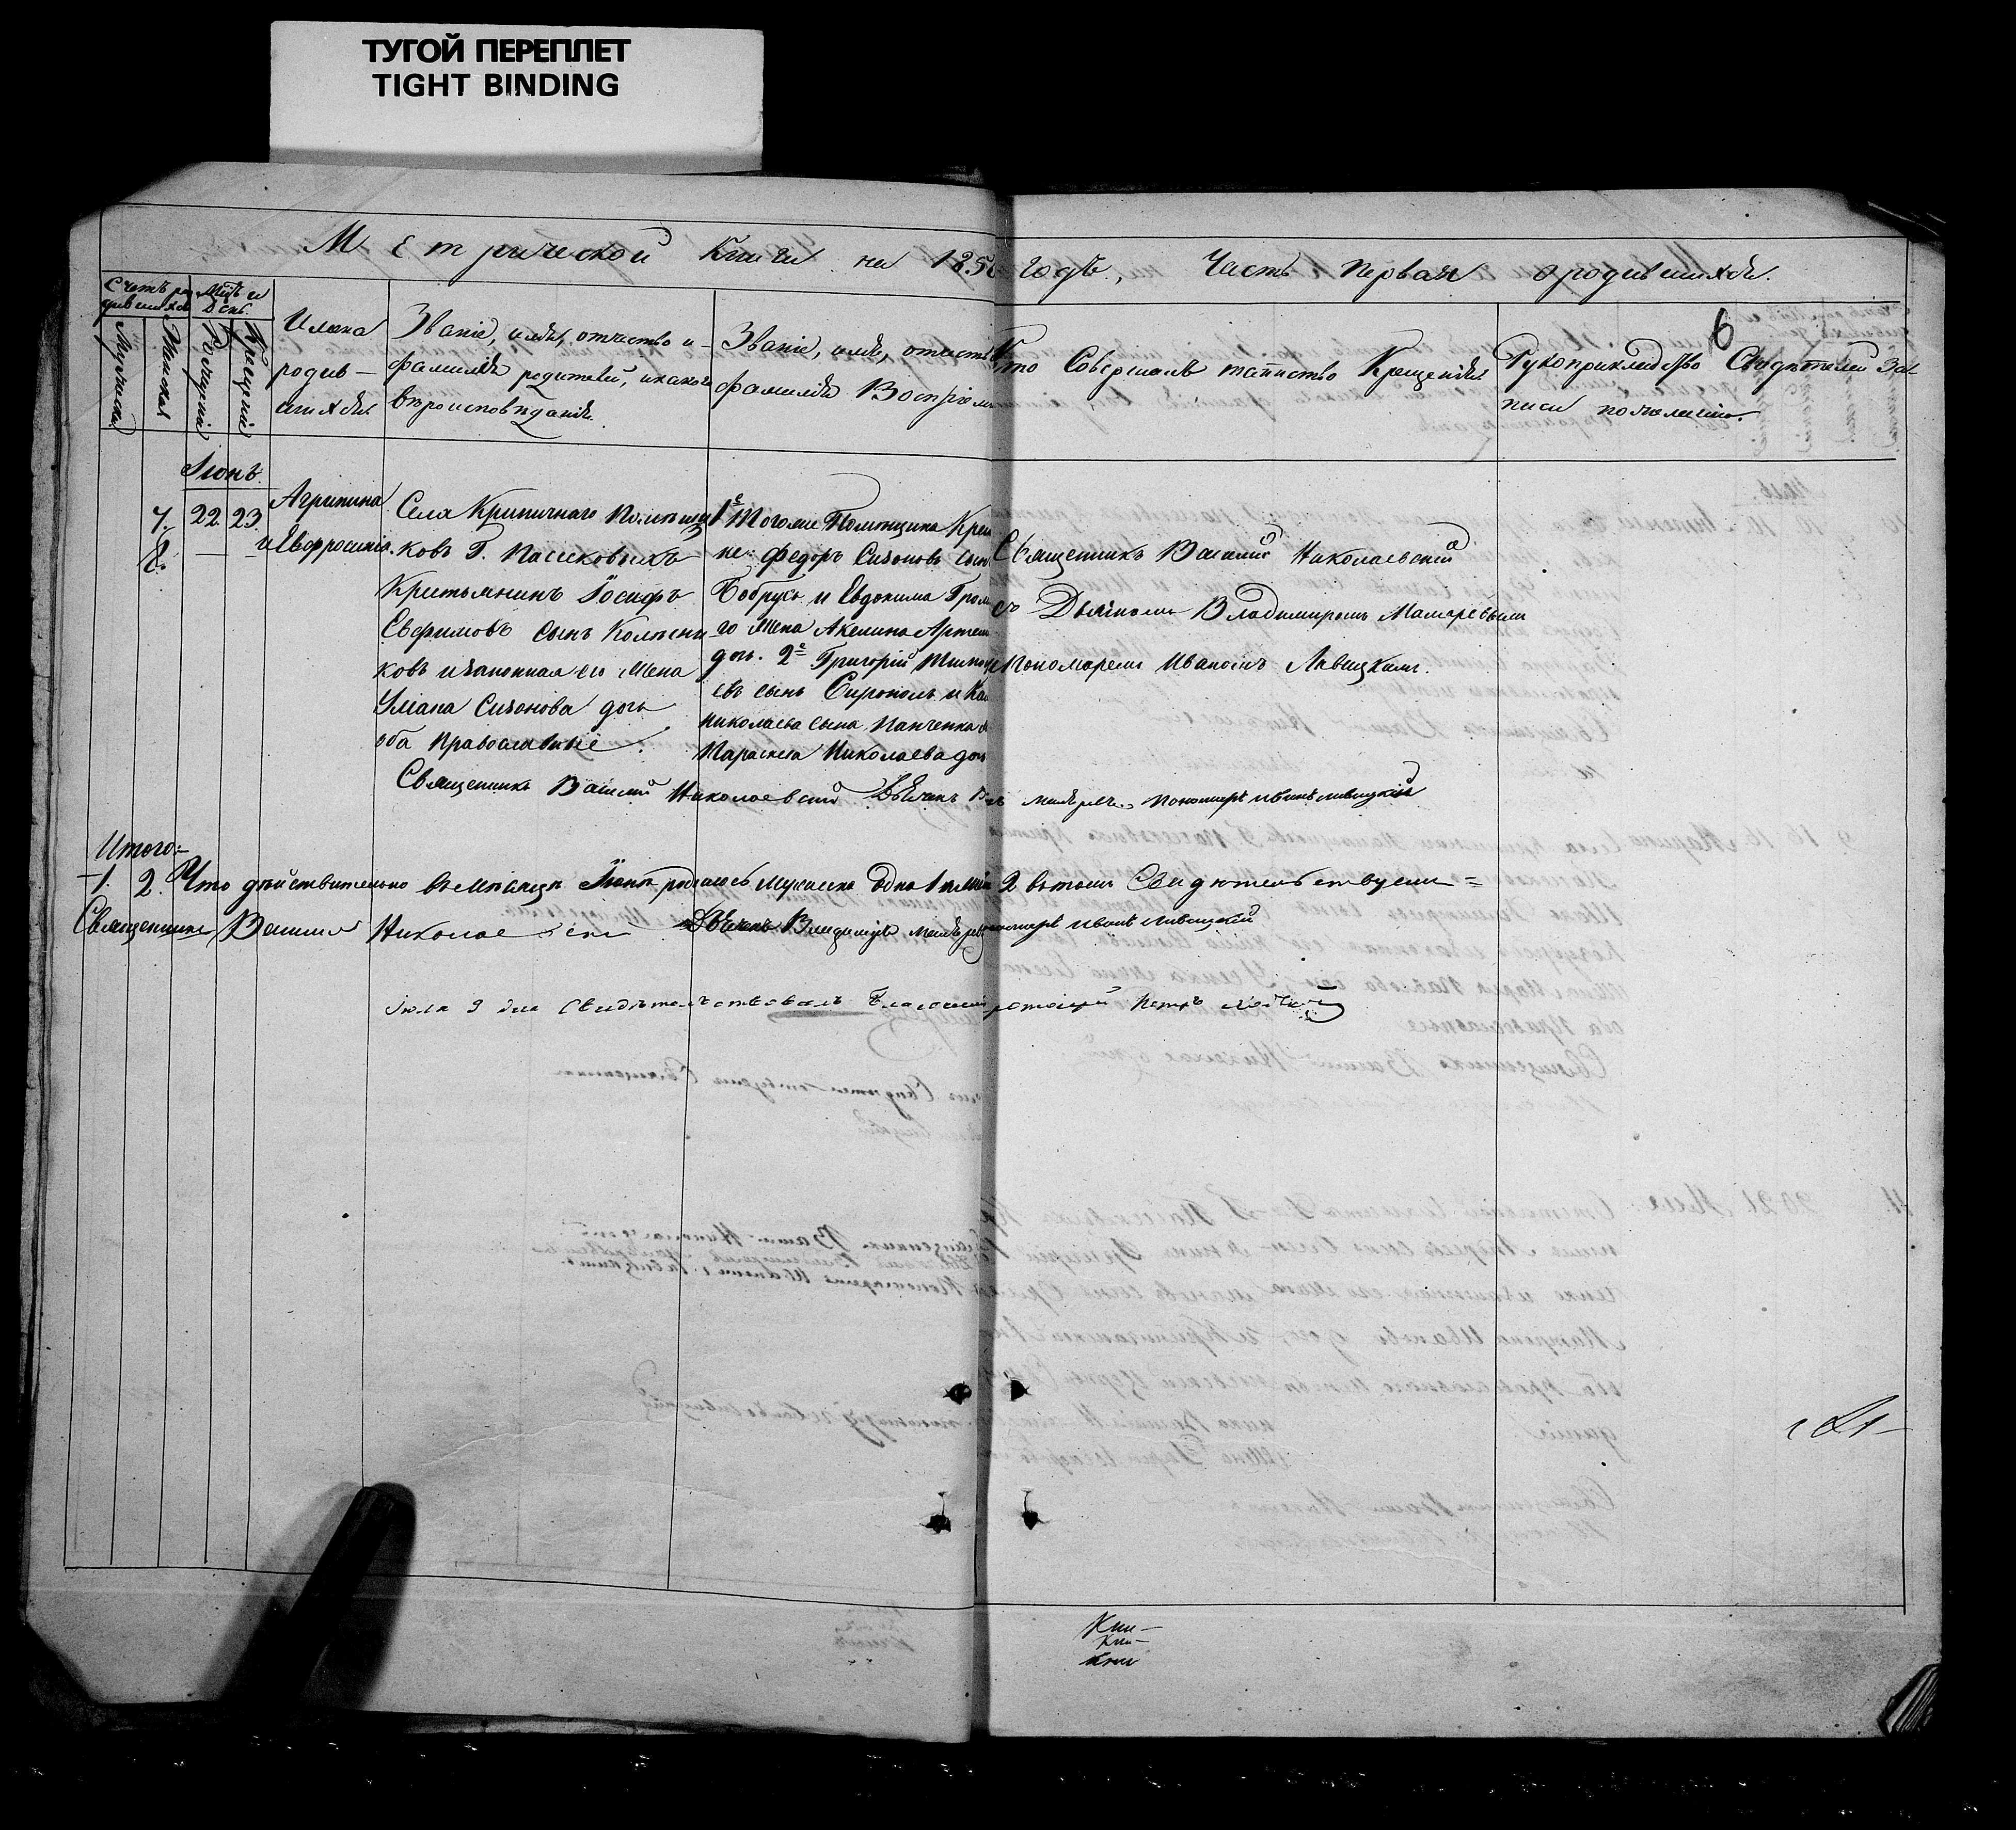 ТУГОЙ ПЕРЕПЛЕТ
TIGHT BINDING
Метрической Книги на 185 годъ, Часть первая о родившихся.
6
Счетъ родившихся
Мѣсяцъ и День.
Мужеска
Женска
Рожденія
Крещенія
Имена
родив-
шихся
Званіе, имя, отчество и
фамилія родителей, и какого
вѣроисповѣданія.
Званіе, имя, отчество
фамилія Воспріем
Кто Совершалъ таинство Крещенія
Рукоприкладство Свидѣтелей За-
писи по желанію.
Іюнь.
7. 22 23.
8.
Агрипина
и Евфросинія.
Села Криничнаго Помѣщи
ковъ Г. Пасековыхъ
Крестьянинъ Іосифъ
Евфимовъ сынъ Колѣсни
ковъ и законная его жена
Уліана Сизонова дочь
оба Православные
1е Тогоже Помѣщика Крес
не Федоръ Сизоновъ сынъ
Бобрусь и Евдокима Гром
го жена Акелина Артем
дочь. 2е Григорій Тимоѳе
евъ сынъ Сирополъ и
Николаева сына Панченка
Параскева Николаева дочь
Священникъ Василій Николаевскій
съ Дьякономъ Владимиромъ
Пономаремъ Иваномъ Лавицкимъ.
Священникъ Василій Николаевскій Дьяконъ Пономарь Иванъ Лавицкій
Итого=
1. 2. Что дѣйствительно въ мѣсяцѣ Іюнѣ родилось мужеска одно 1 2 въ томъ Свидѣтельствуемъ=
Священникъ Василій Николаевскій Дьяконъ Владимиръ Пономарь Иванъ Лавицкій
Іюля 9 дня Свидѣтельствовалъ Благочинный Петръ
Кни-
Кни-
Книг